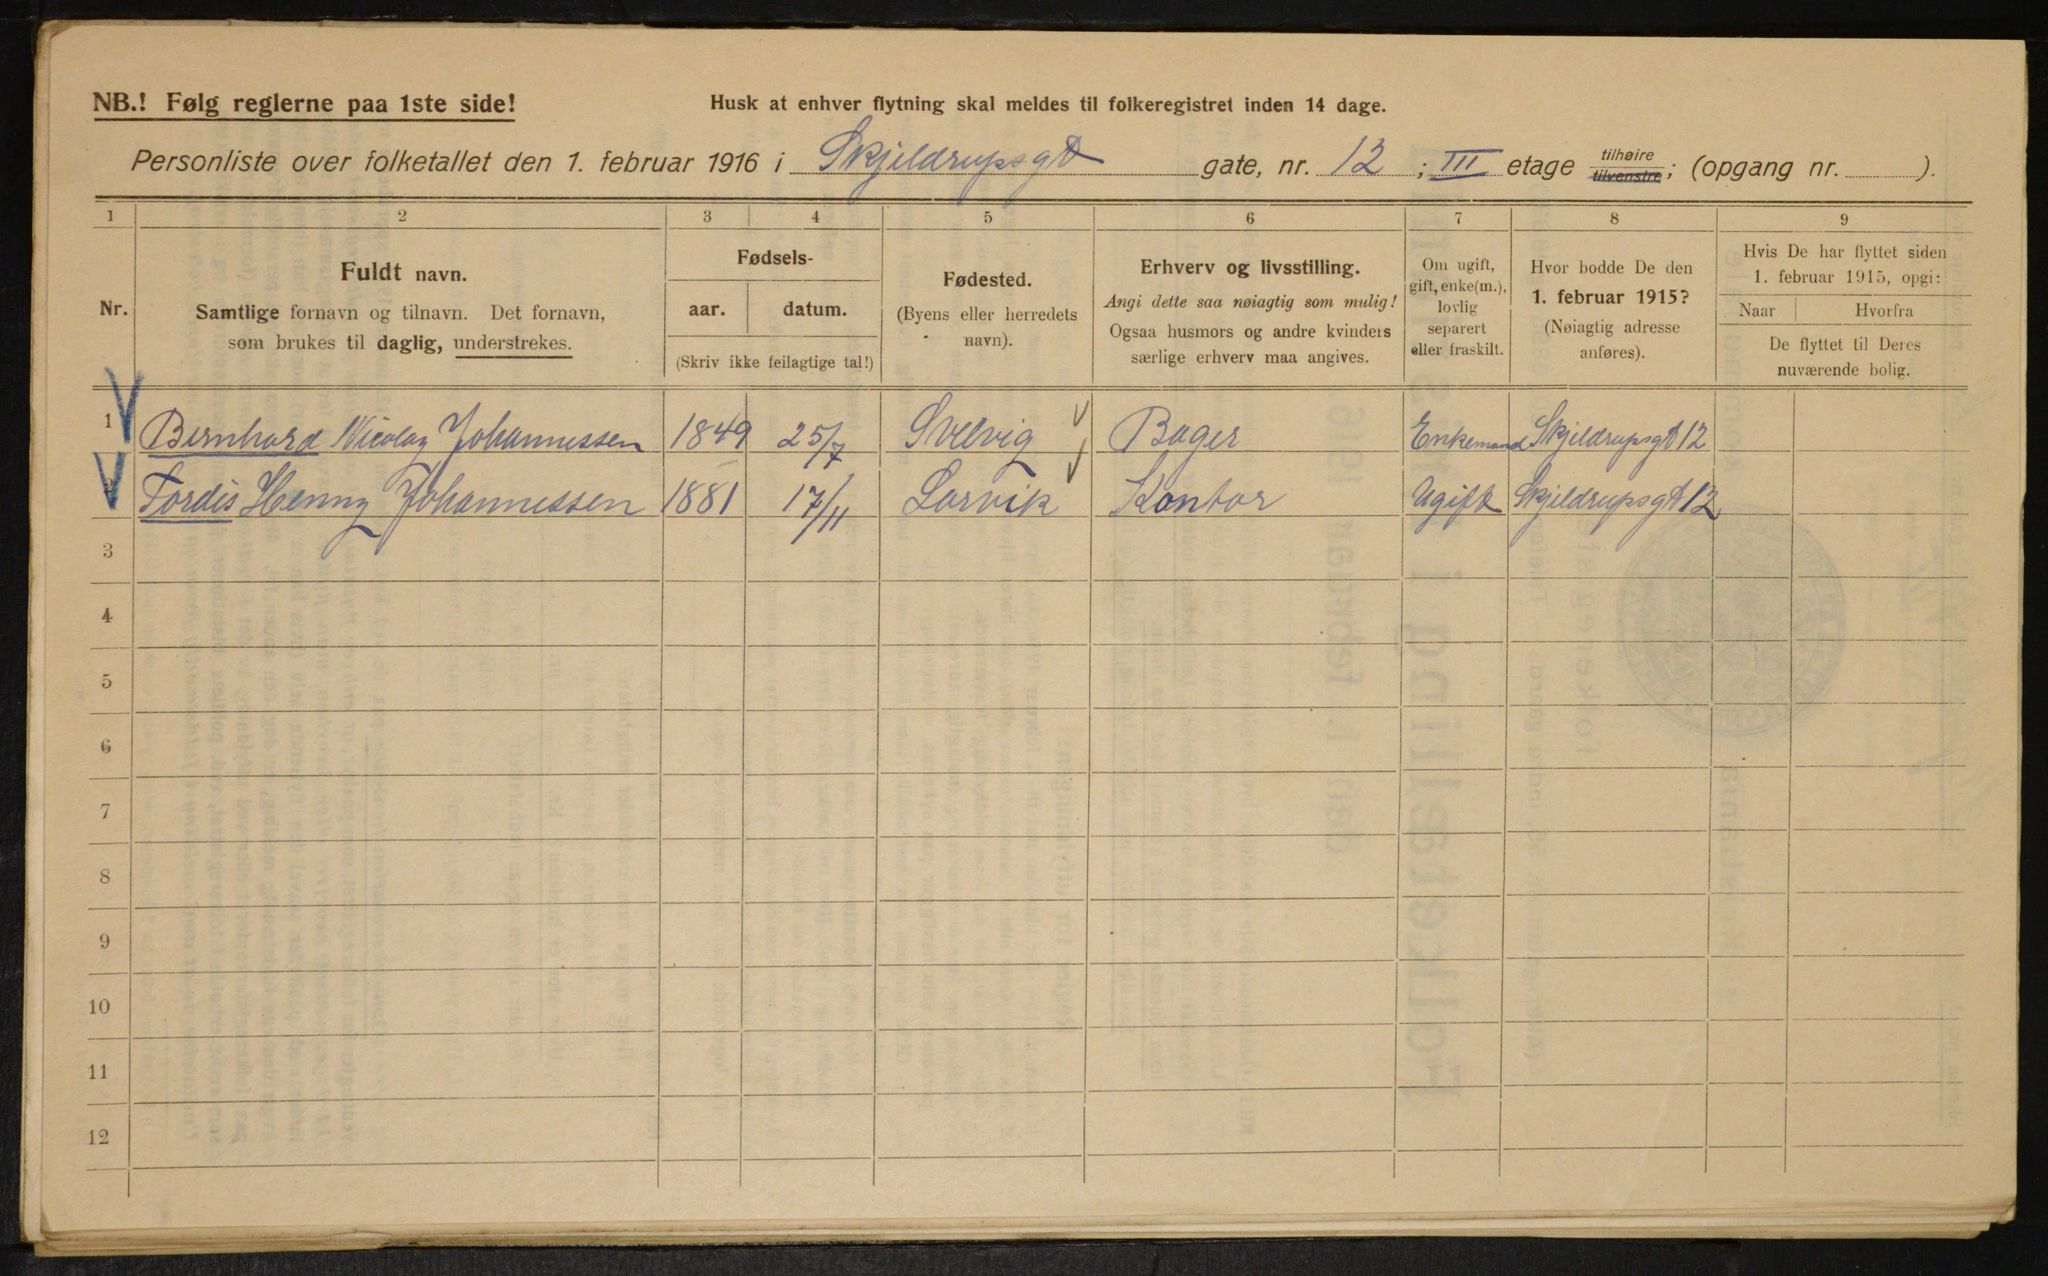 NB.! Følg reglerne paa 1ste side!
Husk at enhver flytning skal meldes til folkeregistret inden 14 dage.
Personliste over folketallet den 1. februar 1916 i Skjeldrupsgt gate, nr. 12 ; III etage tilhøire tilvenstre; (opgang nr. ).
1 2 3 4 5 6 7 8 9
Nr.
Fuldt navn.
Samtlige fornavn og tilnavn. Det fornavn,
som brukes til daglig, understrekes.
Fødsels-
aar. datum.
(Skriv ikke feilagtige tal!)
Fødested.
(Byens eller herredets
navn).
Erhverv og livsstilling.
Angi dette saa nøiagtig som mulig!
Ogsaa husmors og andre kvinders
særlige erhverv maa angives.
Om ugift,
gift, enke(m.),
lovlig
separert
eller fraskilt.
Hvor bodde De den
1. februar 1915?
(Nøiagtig adresse
anføres).
Hvis De har flyttet siden
1. februar 1915, opgi:
Naar Hvorfra
De flyttet til Deres
nuværende bolig.
1 Bernhard Nicolay Johannessen 1849 25/7 Svelvig Bager Enkemand Skjeldrupsgt 12
2 Tordis Henny Johannessen 1881 17/11 Larvik Kontor Ugift Skjeldrupsgt 12
3
4
5
6
7
8
9
10
11
12